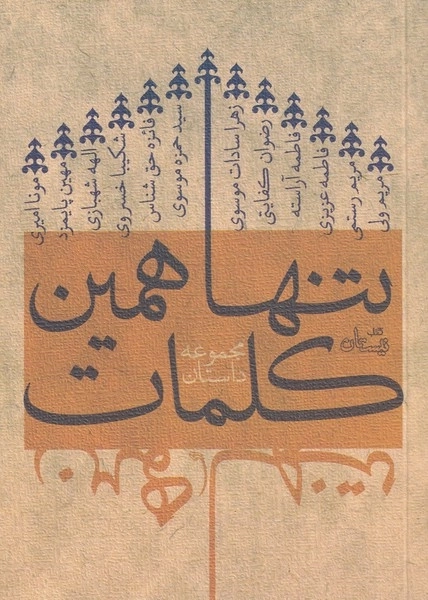 مریم ولی
مریم رستمی
فاطمه عزیزی
فاطمه آراسته
رضوان کفایتی
زهرا سادات موسوی
سید حمزه موسوی
فائزه حق شناس
شکیبا خسروی
الهه شهبازی
مهین پایمزد
مونا امیری
تنها همین
کلمات
مجموعه
داستان
کتاب
نیستان